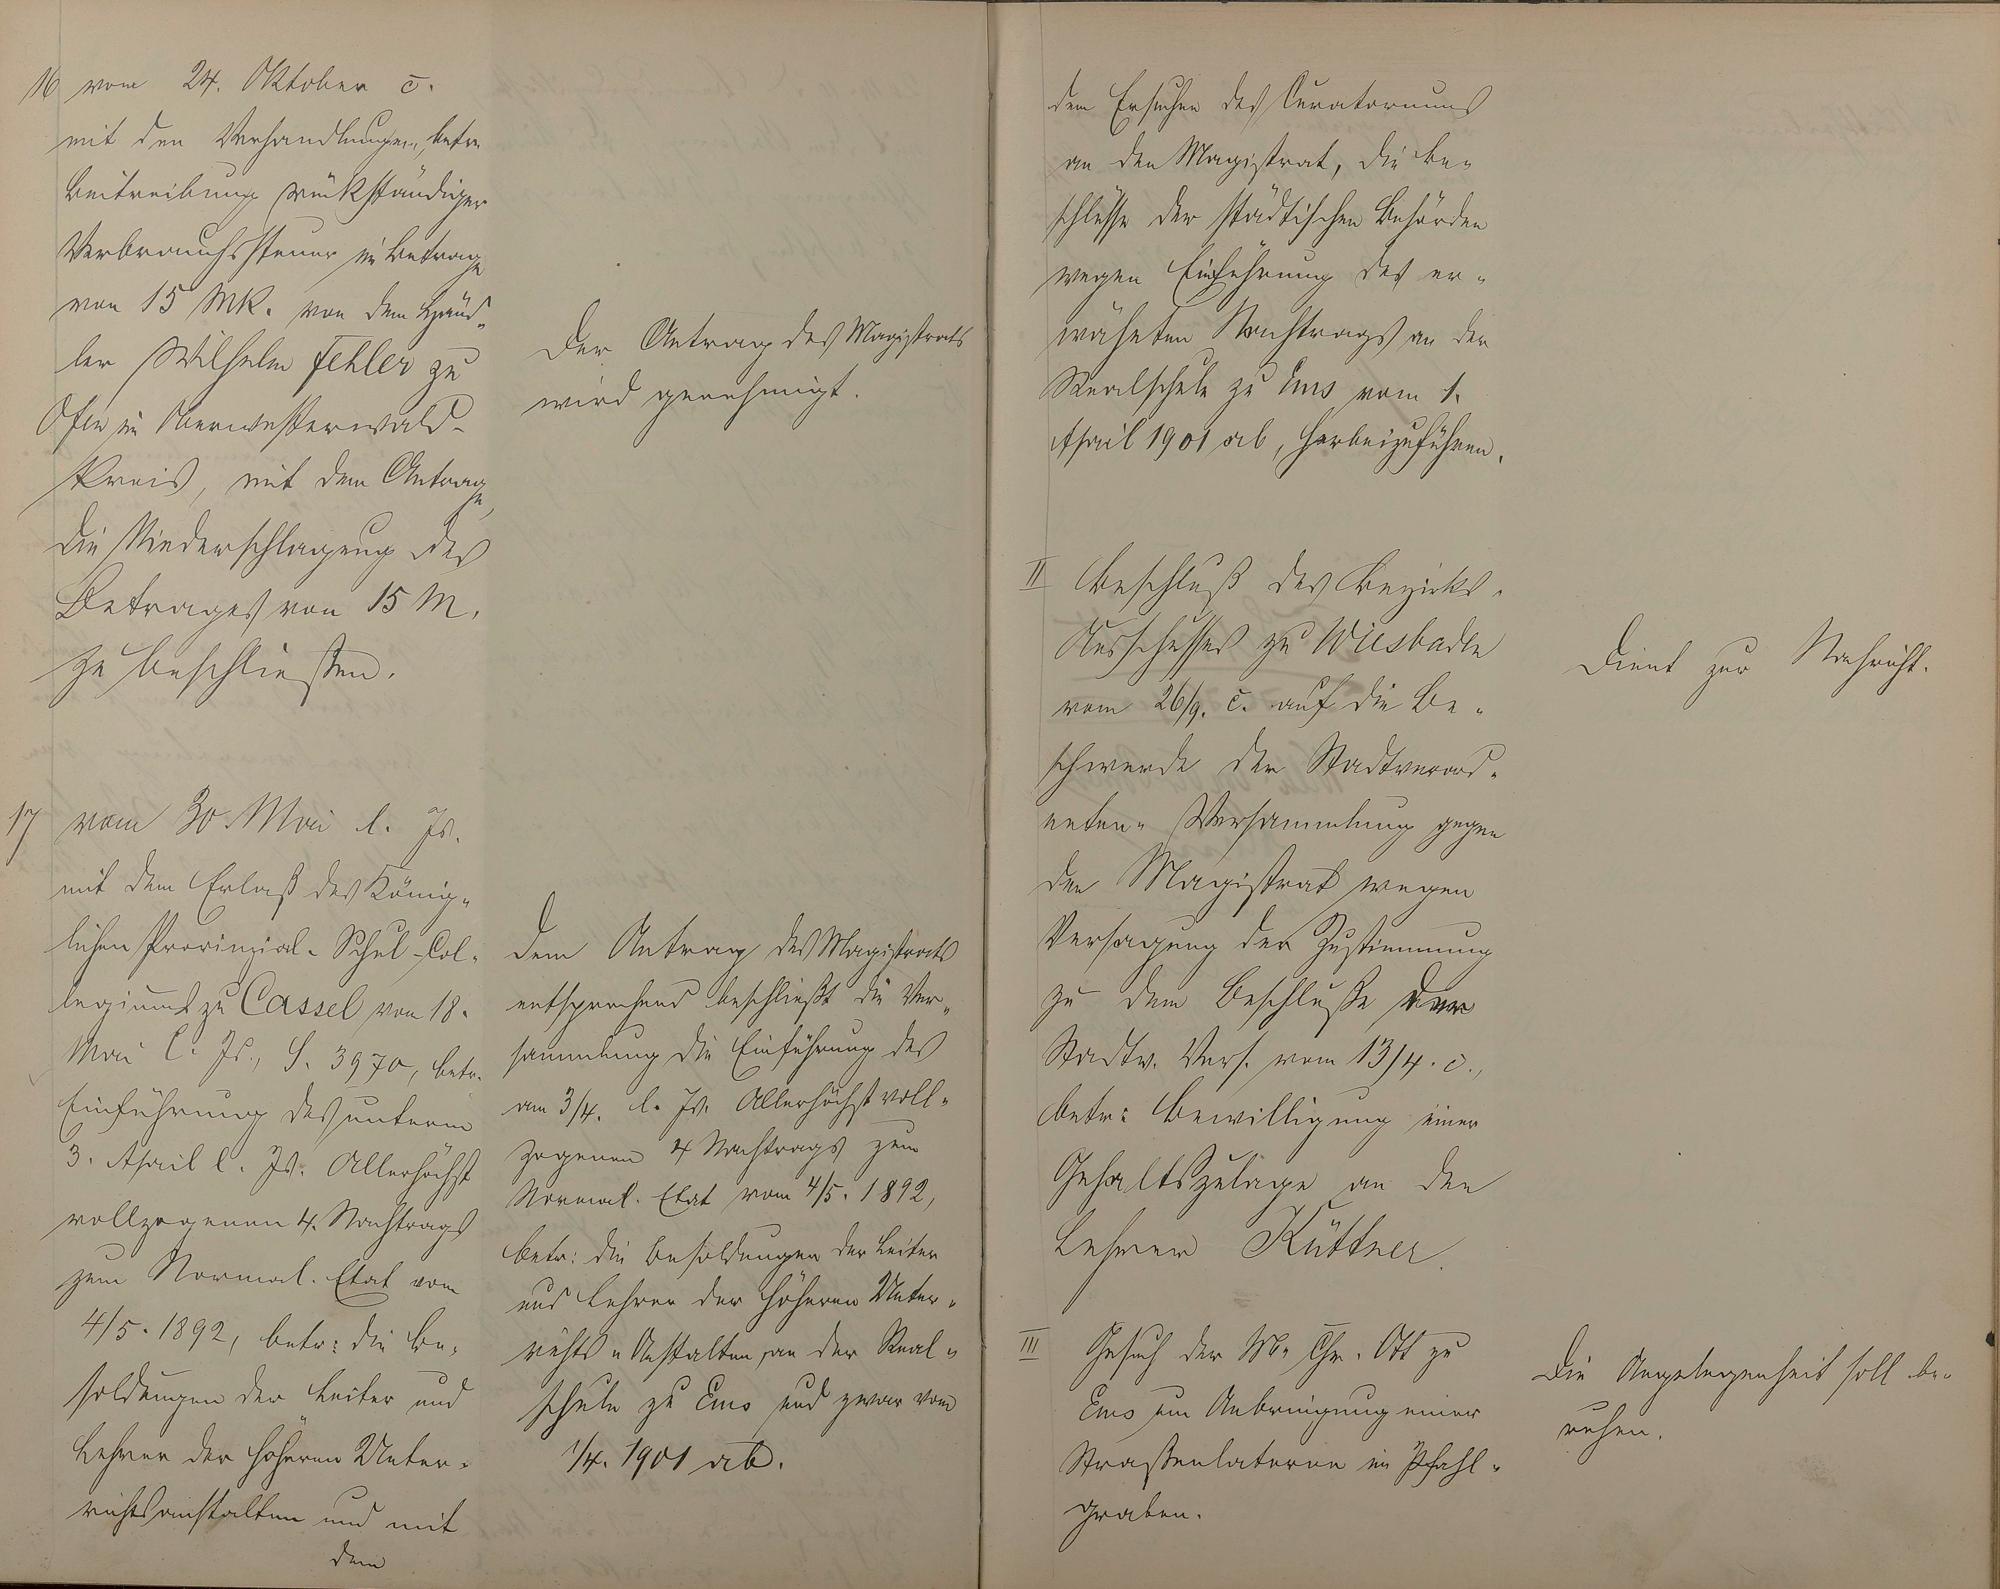 16 vom 24. Oktober c̄.
mit den Verhandlungen, betr.
Beitreibung rückständiger
Verbrauchssteuer im Betrage
von 15 Mk. von dem Händ-
ler Wilhelm Fehler zu
im Oberwesterwald-
kreis, mit dem Antrage,
die Niederschlagung des
Betrages von 15 M.
zu beschließen.
Der Antrag des Magistrats
wird genehmigt.
17 vom 30. Mai l. Js.
mit dem Erlaß des König-
lichen Provinzial-Schul-Col-
legiums zu Cassel vom 18.
Mai l. Js., S. 3970, betr.
Einführung des unterm
3. April l. Js. Allerhöchst
vollzogenen 4. Nachtrags
zum Normal-Etat vom
4/5. 1892, betr: die Be-
soldungen der Leiter und
Lehrer der höheren Unter-
richtsanstalten und mit
dem
Dem Antrag des Magistrats
entsprechend beschließt die Ver-
sammlung die Einführung des
am 3/4. l. Js. Allerhöchst voll-
zogenen 4 Nachtrags zum
Normal-Etat vom 4/5. 1892,
betr: die Besoldungen der Leiter
und Lehrer der höheren Unter-
richts-Anstalten, an der Real-
schule zu Ems und zwar vom
1/4. 1901 ab.
dem Ersuchen des Curatoriums
an den Magistrat, die Be-
schlüsse der städtischen Behörden
wegen Einführung des er-
wähnten Nachtrags an der
Realschule zu Ems vom 1.
April 1901 ab, herbeizuführen.
II Beschluß des Bezirks-
Ausschusses zu Wiesbaden
vom 26/9. c̄. auf die Be-
schwerde der Stadtverord-
neten-Versammlung gegen
den Magistrat wegen
Versagung der Zustimmung
zu dem Beschluße der
Stadtv. Vers. vom 13/4. c.,
betr: Bewilligung einer
Gehaltszulage an den
Lehrer Küttner.
Dient zur Nachricht.
III Gesuch der M. Chr. Ott zu
Ems um Anbringung einer
Straßenlaterne im Pfahl-
graben.
Die Angelegenheit soll be-
ruhen.